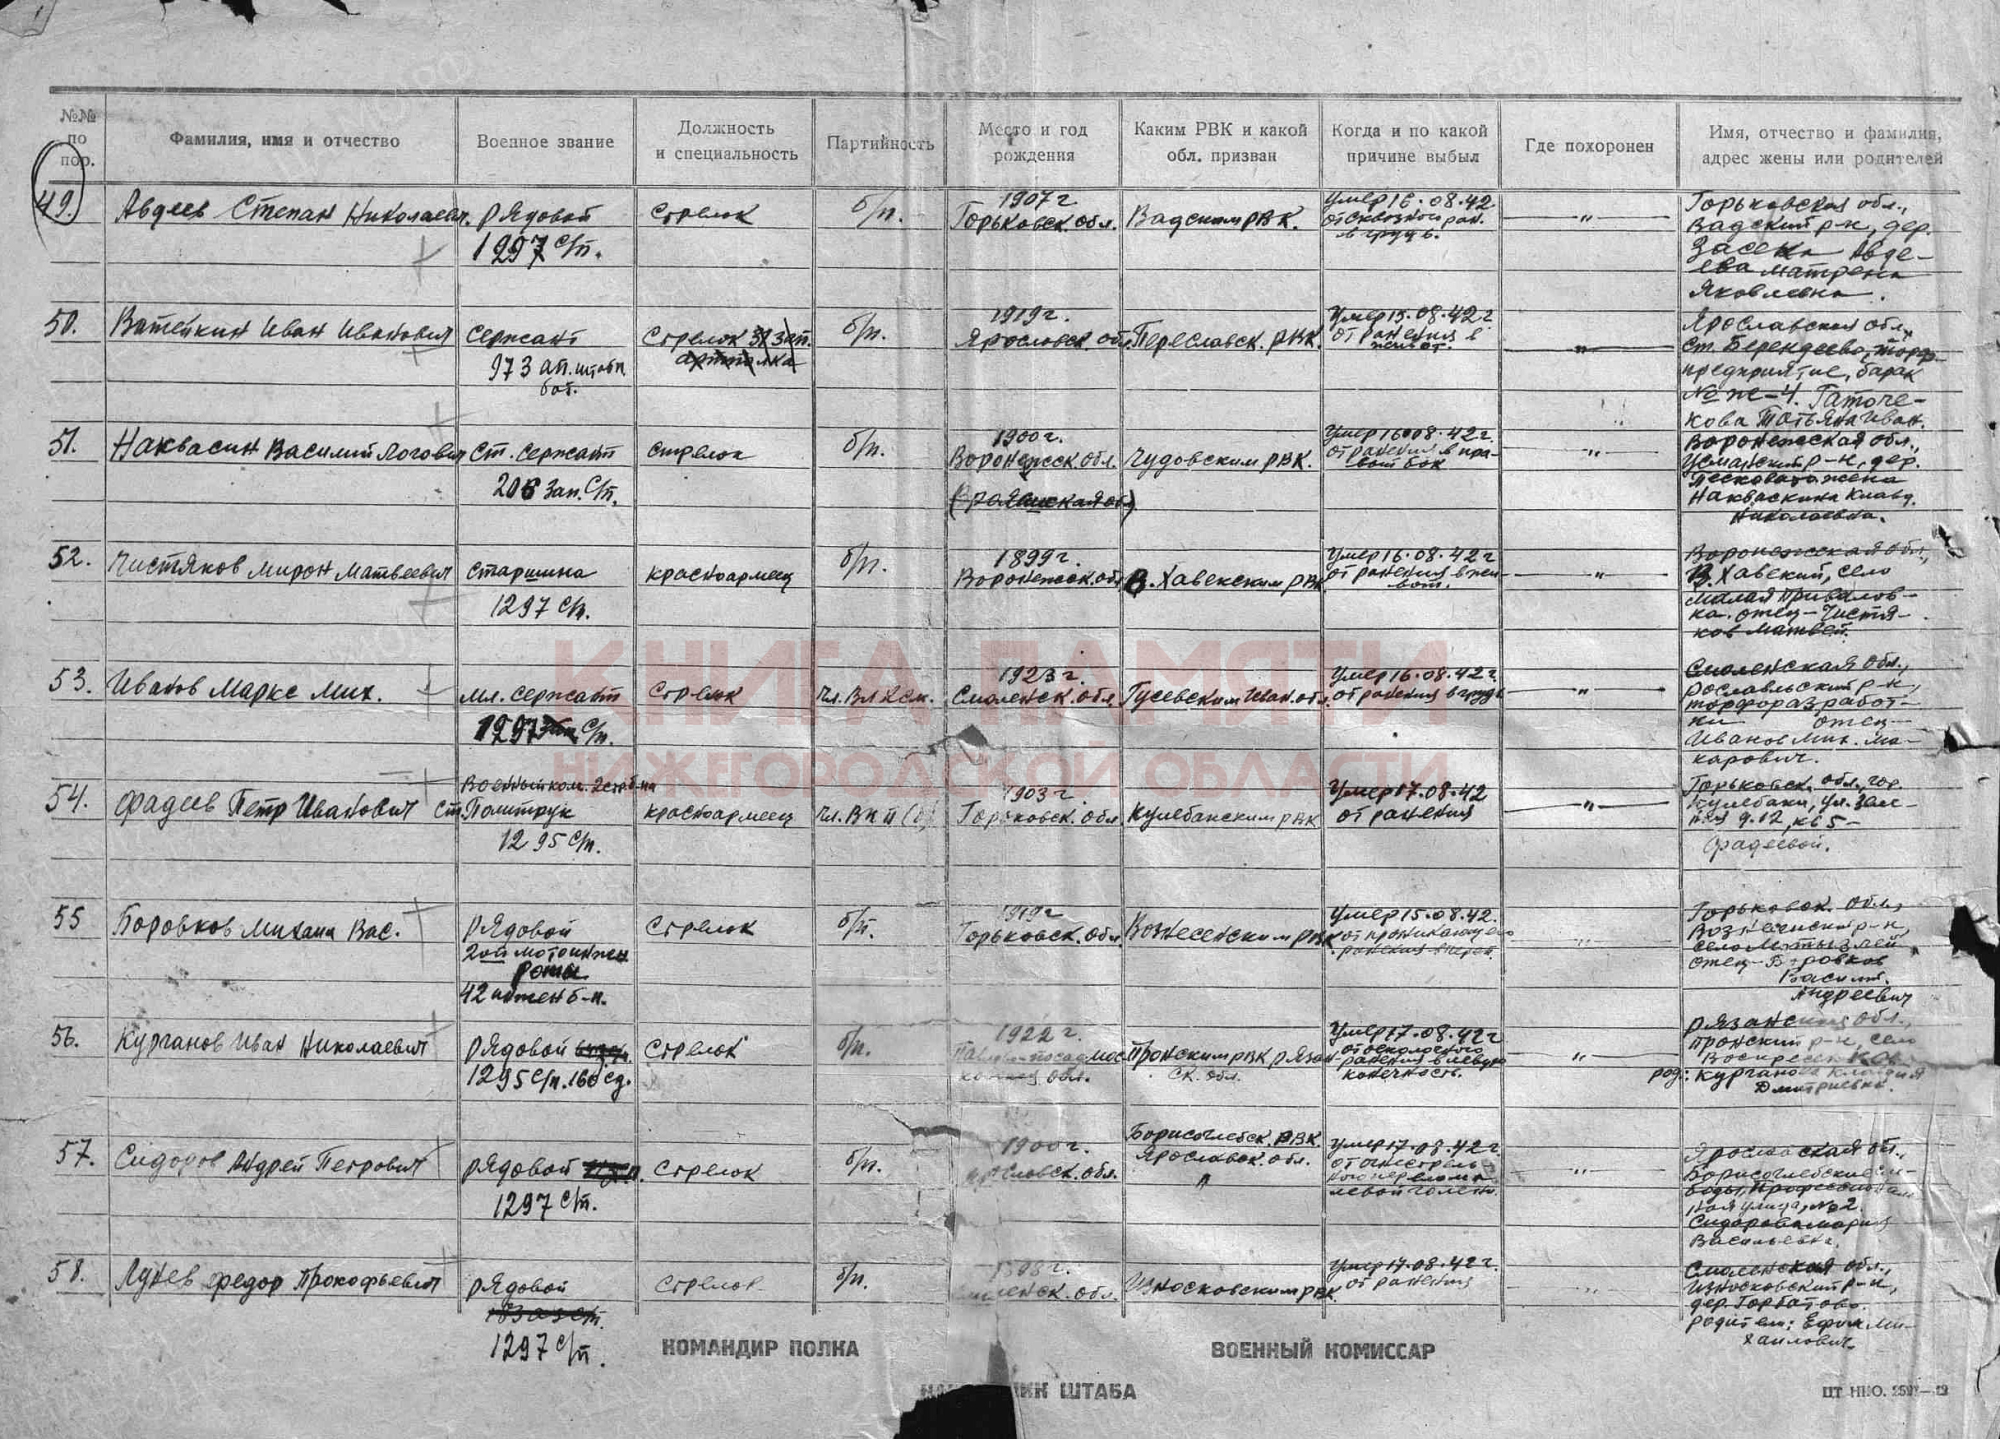 №№ по пор.
Фамилия, имя и отчество
Военное звание
Должность и специальность
Партийность
Место и год рождения
Каким РВК и какой обл. призван
Когда и по какой причине выбыл
Где похоронен
Имя, отчество и фамилия, адрес жены или родителей
49.
Авдеев Степан Николаевич.
рядовой
1297 с/п.
Стрелок
б/п.
1907 г
Горьковск. обл.
Вадским РВК.
Умер 16.08.42
от сквозного ран.
в грудь.
— „ —
Горьковская обл.,
Вадский р-н, дер.
Засека Авде-
ева Матрена
Яковлевна.
50.
Иван Иванович
Сержант
973 ап. штабн.
бат.
Стрелок
б/п.
1919 г.
Ярославск. обл.
Переславск. РВК.
Умер 15.08.42 г
от ранения в
живот.
— „ —
Ярославская обл.
ст. Берендеево, торф-
предприятие, барак
Татьяна Иван.
51.
Наквасин Василий
Ст. сержант
206 Зап. С/п.
стрелок
б/п.
1900 г.
Воронежск. обл.
Чудовским РВК.
Умер 16.08.42 г.
от ранения в пра-
вый бок
— „ —
Воронежская обл.,
Усманский р-н, дер.
Песковатка жена
Наквасина Клавд.
Николаевна.
52.
Чистяков Мирон Матвеевич
Старшина
1297 с/п.
красноармеец
б/п.
1899 г.
Воронежск. обл.
В. Хавским РВК
Умер 16.08.42 г
от ранения в жи-
вот.
— „ —
Воронежская обл.,
В. Хавский, село
Малая Приваловка
ка. отец — Чистя-
ков Матвей.
53.
Иванов Маркс Мих.
мл. сержант
1297 с/п.
Стрелок
чл. ВЛКСМ.
1923 г.
Смоленск. обл.
Гусевским Иван. обл.
Умер 16.08.42 г
от ранения в грудь
— „ —
Смоленская обл.,
Рославльский р-н,
торфоразработ-
ки отец —
Иванов Мих. Ма-
карович.
54.
Фадеев Петр Иванович
Ст. Политрук
1295 с/п.
красноармеец
чл. ВКП(б)
1903 г.
Горьковск. обл.
Кулебакским РВК
Умер 17.08.42
от ранения
— „ —
Горьковск. обл., гор.
Кулебаки, ул.
д. 12, кв 5 —
Фадеевой.
55
Боровков Михаил Вас.
рядовой
2ой мотоинжен
роты
42 инжен б-н.
Стрелок
б/п.
1919 г
Горьковск. обл
Вознесенским РВК
Умер 15.08.42.
от проникающего
ранения
Горьковск. обл.,
Вознесенский р-н,
отец — Боровков
Василий
Андреевич
56.
Курганов Иван Николаевич
рядовой
1295 с/п.
Стрелок
б/п.
1922 г.
обл.
Пронским РВК Рязан-
ск. обл.
Умер 17.08.42 г
от осколочного
ранения в левую
конечность.
— „ —
Рязанская обл.,
Пронский р-н, село
род.: Курганова Клавдия
Дмитриевна.
57.
Сидоров Андрей Петрович
рядовой
1297 с/п.
Стрелок
б/п.
1900 г.
Ярославск. обл.
Борисоглебск. РВК.
Ярославск. обл.
Умер 17.08.42 г.
левой голени.
Ярославская обл.,
№ 2.
Сидорова Мария
Васильевна.
58.
Лунев Федор Прокофьевич
рядовой
1297 с/п.
Стрелок
б/п.
Смоленск. обл.
Износковским РВК.
Умер 17.08.42 г.
от ранения
Смоленская обл.,
Износковский р-н,
дер. Горбатово.
родители: Ефим Ми-
хайлович.
КНИГА ПАМЯТИ
НИЖЕГОРОДСКОЙ ОБЛАСТИ
КОМАНДИР ПОЛКА
ВОЕННЫЙ КОМИССАР
ШТАБА